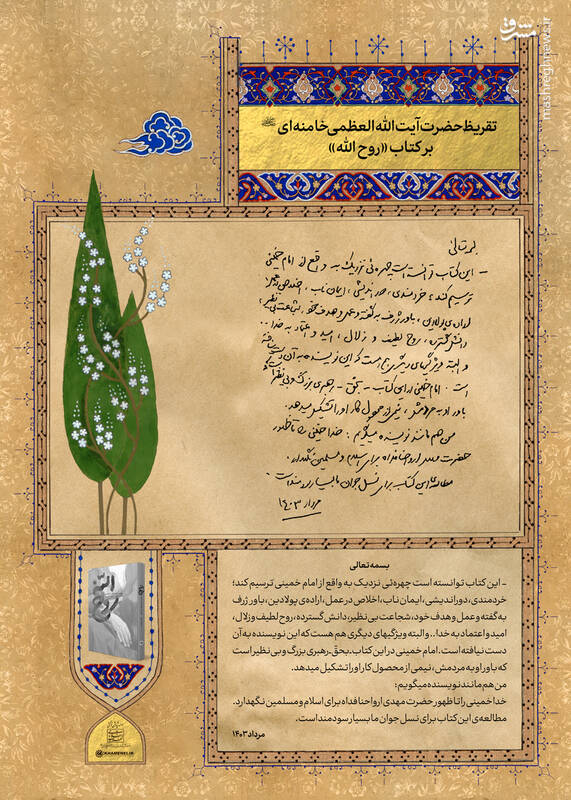 مشرق
mashreghnews.ir
تقریظ حضرت آیت الله العظمی خامنه‌ای
بر کتاب «روح الله»
بسمه تعالی
- این کتاب توانسته است چهره‌ئی نزدیک به واقع از امام خمینی
ترسیم کند؛ خردمندی، دوراندیشی، ایمان ناب، اخلاص در عمل،
اراده‌ی پولادین، باور ژرف به گفته و عمل و هدف خود، شجاعت بی نظیر،
دانش گسترده، روح لطیف و زلال، امید و اعتماد به خدا...
و البته ویژگیهای دیگری هم هست که این نویسنده به آن دست نیافته
است. امام خمینی در این کتاب - بحق - رهبری بزرگ و بی نظیر است که
باور او به مردمش، نیمی از محصول کار او را تشکیل میدهد.
من هم مانند نویسنده میگویم: خدا خمینی را تا ظهور
حضرت مهدی ارواحنا فداه برای اسلام و مسلمین نگهدارد.
مطالعه‌ی این کتاب برای نسل جوان ما بسیار سودمند است.
مرداد ۱۴۰۳
بسمه تعالی
- این کتاب توانسته است چهره‌ئی نزدیک به واقع از امام خمینی ترسیم کند؛
خردمندی، دوراندیشی، ایمان ناب، اخلاص در عمل، اراده‌ی پولادین، باور ژرف
به گفته و عمل و هدف خود، شجاعت بی نظیر، دانش گسترده، روح لطیف و زلال،
امید و اعتماد به خدا... و البته ویژگیهای دیگری هم هست که این نویسنده به آن
دست نیافته است. امام خمینی در این کتاب، بحق، رهبری بزرگ و بی نظیر است
که باور او به مردمش، نیمی از محصول کار او را تشکیل میدهد.
من هم مانند نویسنده میگویم:
خدا خمینی را تا ظهور حضرت مهدی ارواحنا فداه برای اسلام و مسلمین نگهدارد.
مطالعه‌ی این کتاب برای نسل جوان ما بسیار سودمند است.
مرداد ۱۴۰۳
KHAMENEI.IR